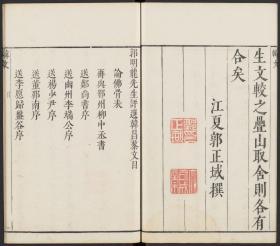 生文較之疊山取舍則各有
合矣
江夏郭正域撰
郭明龍先生評選韓昌黎文目
論佛骨表
再與鄂州柳中丞書
送鄭尚書序
送幽州李端公序
送楊少尹序
送董邵南序
送李愿歸盤谷序